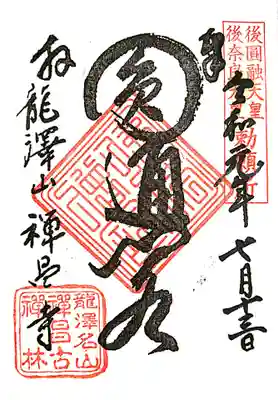 後圓融天皇
後奈良天皇勅願
奉
令和元年七月十三日
圓通閣
拝龍澤山禅昌寺
龍澤名山
禅昌古
禅林